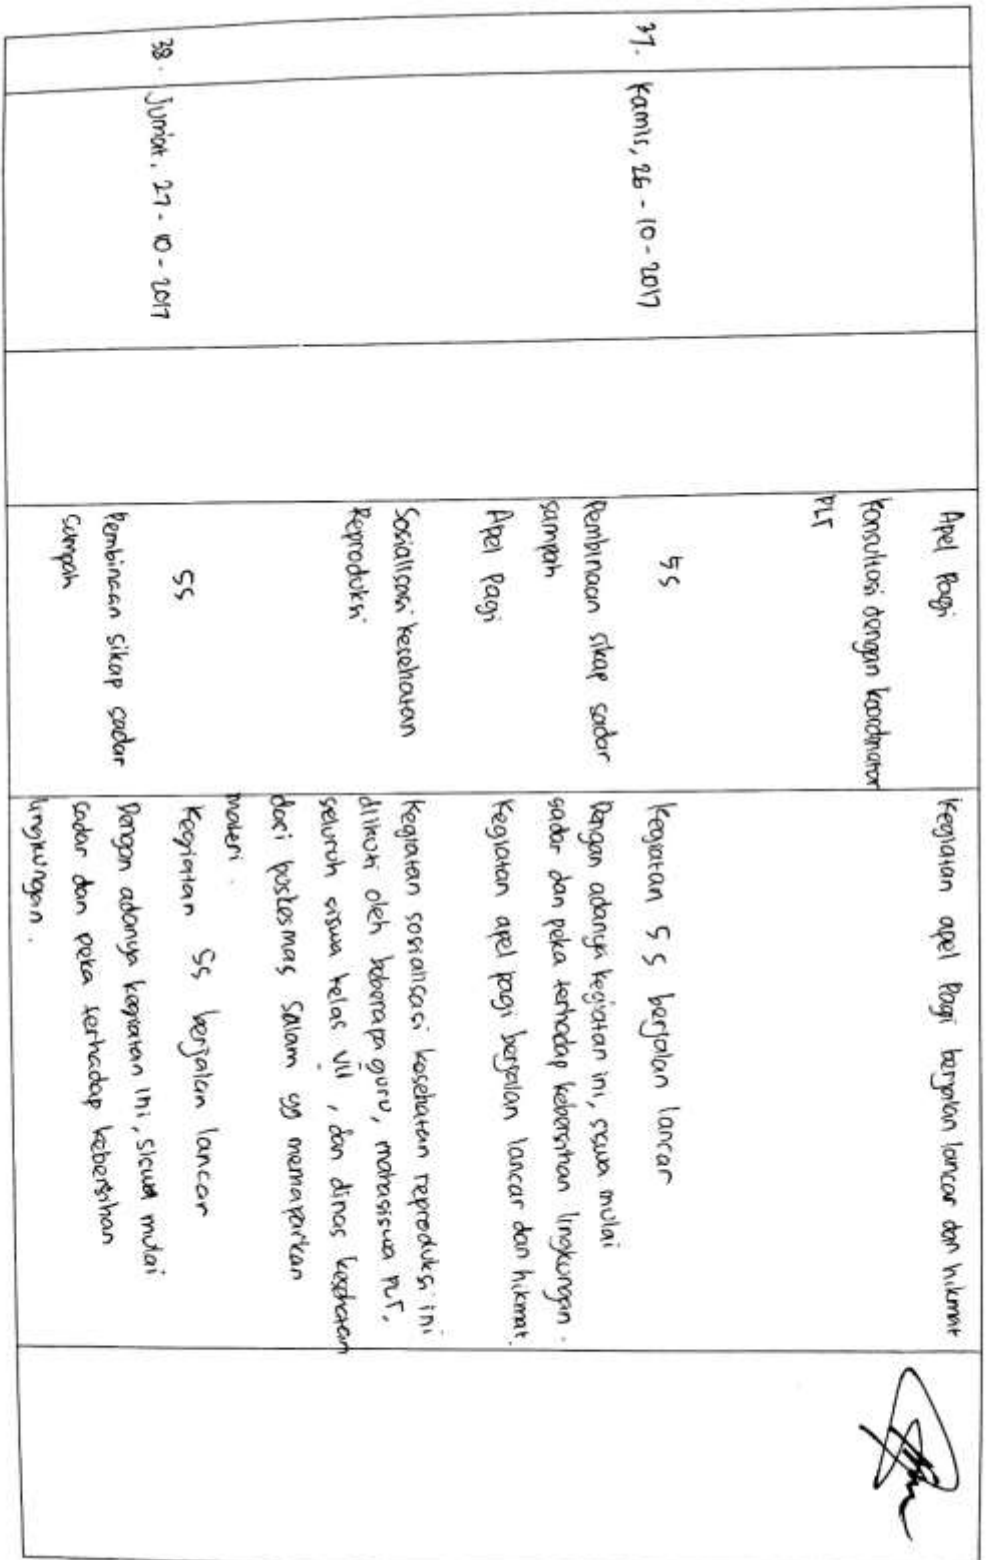 Apel Pagi
Kegiatan apel Pagi berjalan lancar dan hikmat
Konsultasi dengan koordinator
PLT
37.
Kamis, 26 - 10 - 2017
5 S
Kegiatan 5 S berjalan lancar
Pembinaan sikap sadar
sampah
Dengan adanya kegiatan ini, siswa mulai
sadar dan peka terhadap kebersihan lingkungan.
Apel Pagi
Kegiatan apel pagi berjalan lancar dan hikmat.
Sosialisasi kesehatan
Reproduksi
Kegiatan sosialisasi kesehatan reproduksi ini
diikuti oleh beberapa guru, mahasiswa PLT,
seluruh siswa kelas VII, dan dinas kesehatan
dari puskesmas Salam yg memaparkan
materi.
38.
Jumat, 27 - 10 - 2017
5S
Kegiatan 5S berjalan lancar
Pembinaan sikap sadar
sampah
Dengan adanya kegiatan ini, siswa mulai
sadar dan peka terhadap kebersihan
lingkungan.